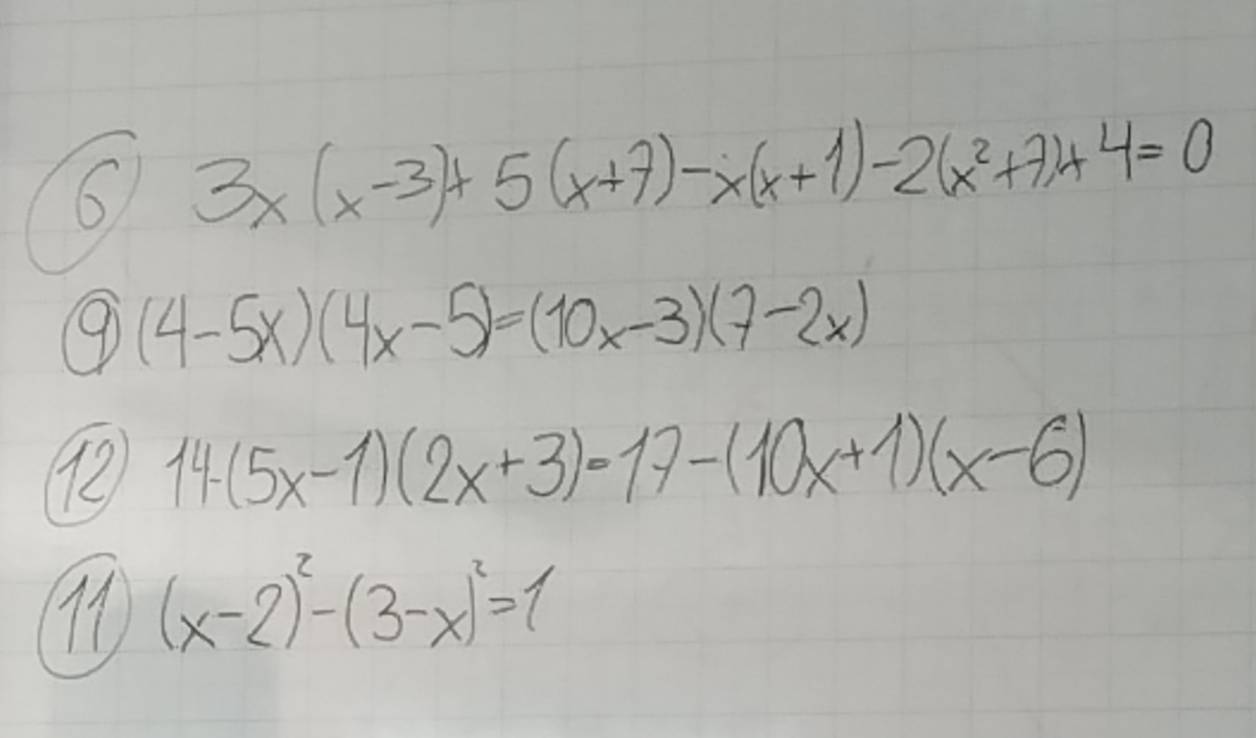 ⑥ 3x(x-3)+5(x+7)-x(x+1)-2(x²+7)+4=0
⑨ (4-5x)(4x-5)=(10x-3)(7-2x)
⑫ 14-(5x-1)(2x+3)=17-(10x+1)(x-6)
⑪ (x-2)²-(3-x)²=1